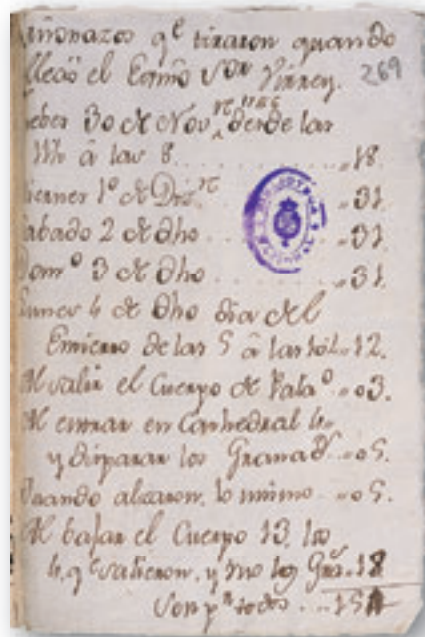 Cañonazos q.e tiraron quando
llegó el Exmo Sor Virrey. 269
Jueves 30 de Nov.re 1786 desde las
a las 8 ........ „18.
Viernes 1º de Dizre „31
Sabado 2 de dho .... „31
Domº 3 de dho ..... „31.
Lunes 4 de dho dia del
Entierro de las 5 a las „12.
Al salir el Cuerpo de Palaº „03.
Al entrar en Cathedral 4.
y disparar los Granads „05.
Quando alzaron, lo mismo „05.
Al bajar el Cuerpo 13, los
4, q.e salieron, y 1 los Gras „18
Son pr todos ... 154